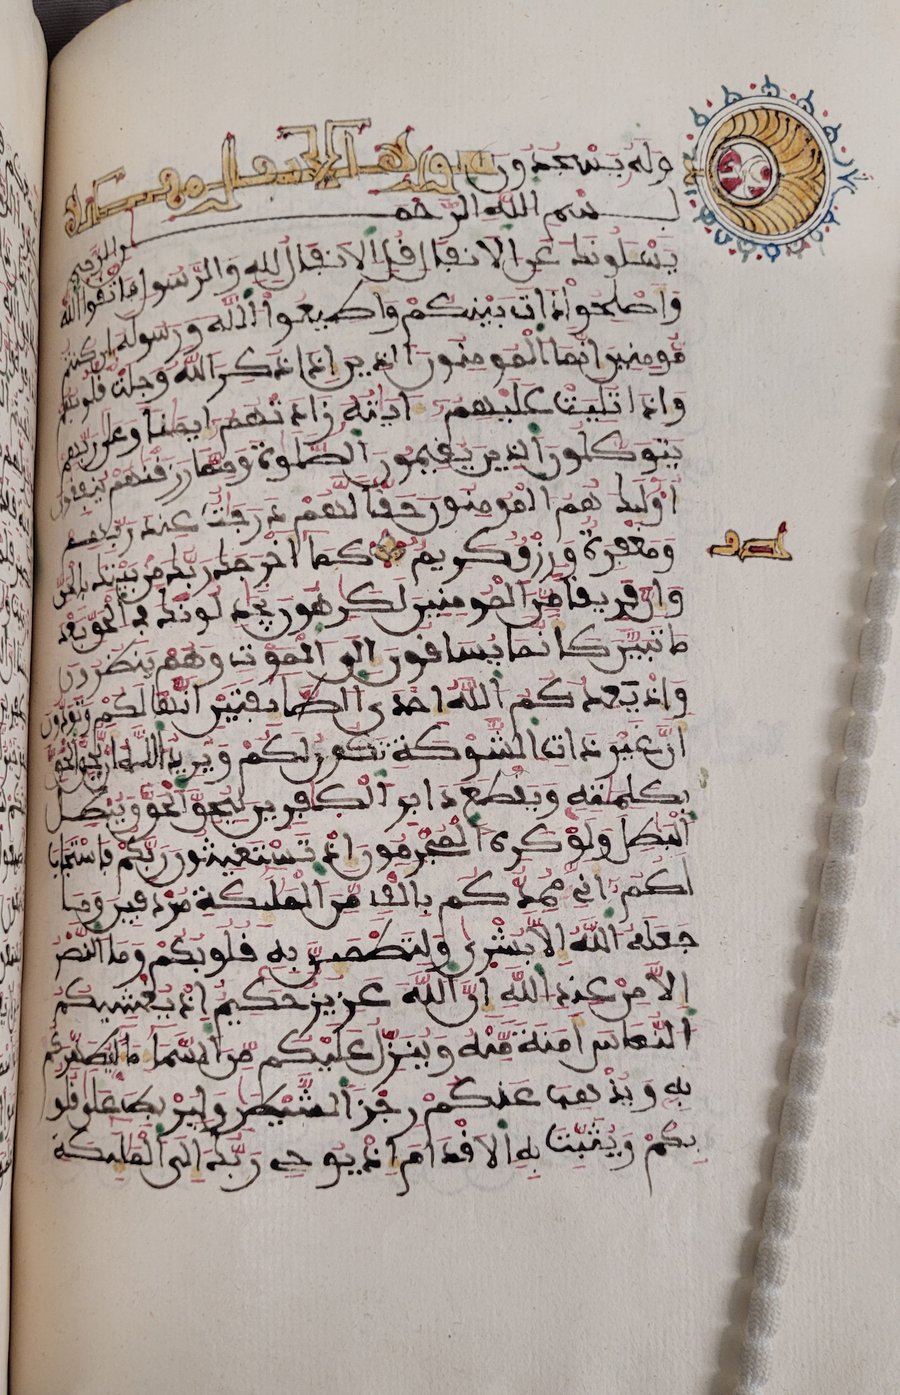 وله يسجدون سورة الانفال مدنية
بسم الله الرحمن الرحيم
يسلونك عن الانفال قل الانفال لله والرسول فاتقوا الله
واصلحوا ذات بينكم واطيعوا الله ورسوله ان كنتم
مومنين انما المومنون الذين اذا ذكر الله وجلت قلوبهم
واذا تليت عليهم ءايته زادتهم ايمنا وعلى ربهم
يتوكلون الذين يقيمون الصلوة ومما رزقنهم ينفقون
اوليك هم المومنون حقا لهم درجت عند ربهم
ومغفرة ورزق كريم كما اخرجك ربك من بيتك بالحق
وان فريقا من المومنين لكرهون يجدلونك في الحق بعد
ما تبين كانما يساقون الى الموت وهم ينظرون
واذ يعدكم الله احدى الطايفتين انها لكم وتودون
ان غير ذات الشوكة تكون لكم ويريد الله ان يحق الحق
بكلمته ويقطع دابر الكفرين ليحق الحق ويبطل
البطل ولو كره المجرمون اذ تستغيثون ربكم فاستجاب
لكم اني ممدكم بالف من المليكة مردفين وما
جعله الله الا بشرى ولتطمين به قلوبكم وما النصر
الا من عند الله ان الله عزيز حكيم اذ يغشيكم
النعاس امنة منه وينزل عليكم من السما ما ليطهركم
به ويذهب عنكم رجز الشيطن وليربط على قلو
بكم ويثبت به الاقدام اذ يوحي ربك الى المليكة